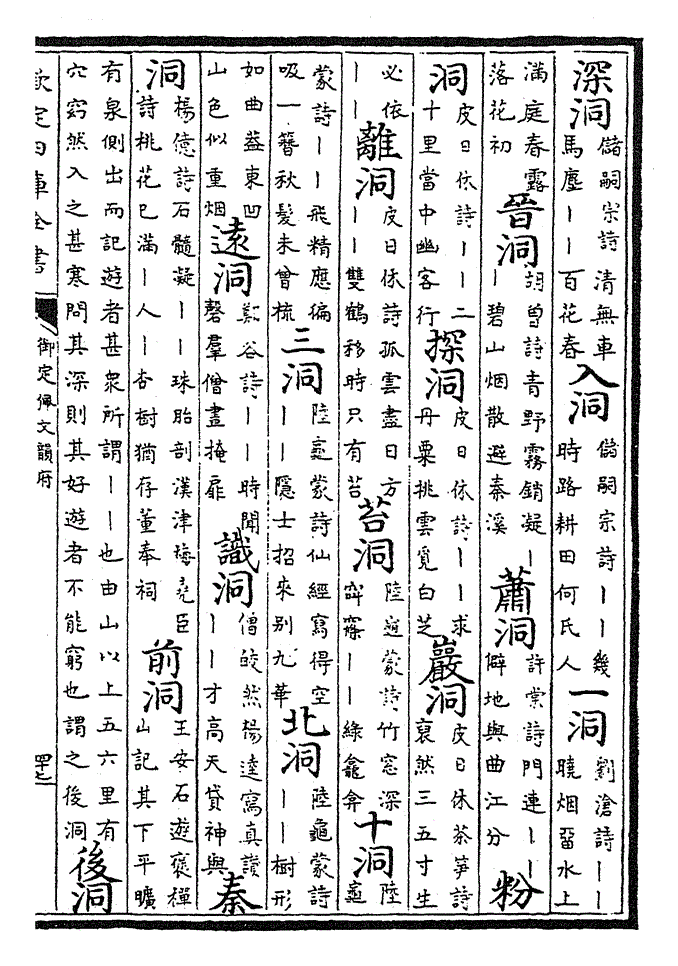 深洞儲嗣宗詩清無車馬塵丨丨百花春入洞儲嗣宗詩丨丨幾時路耕田何氏人一洞劉滄詩丨丨曉烟畱水上
滿庭春露落花初晉洞胡曾詩青野霧銷凝丨丨碧山烟散避秦溪蕭洞許棠詩門連丨丨僻地與曲江分粉
洞皮日休詩丨丨二十里當中幽客行探洞皮日休詩丨丨求丹粟挑雲覓白芝巖洞皮日休茶筍詩裒然三五寸生
必依丨丨離洞皮日休詩孤雲盡日方丨丨雙鶴移時只有苔苔洞陸龜蒙詩竹窓深窣窱丨丨綠龕弇十洞陸龜
蒙詩丨丨飛精應徧吸一簪秋髮未曾梳三洞陸龜蒙詩仙經寫得空丨丨隱士招來别九華北洞陸龜蒙詩丨丨樹形
如曲蓋東凹山色似重烟遠洞鄭谷詩丨丨時聞磬羣僧晝掩扉識洞僧皎然楊逵寫真讚丨丨才高天貸神與秦
洞楊億詩石髓凝丨丨珠胎剖漢津梅堯臣詩桃花已滿丨人丨杏樹猶存董奉祠前洞王安石遊褒禪山記其下平曠
有泉側出而記遊者甚衆所謂丨丨也由山以上五六里有穴窈然入之甚寒問其深則其好遊者不能窮也謂之後洞後洞
欽定四庫全書
御定佩文韻府